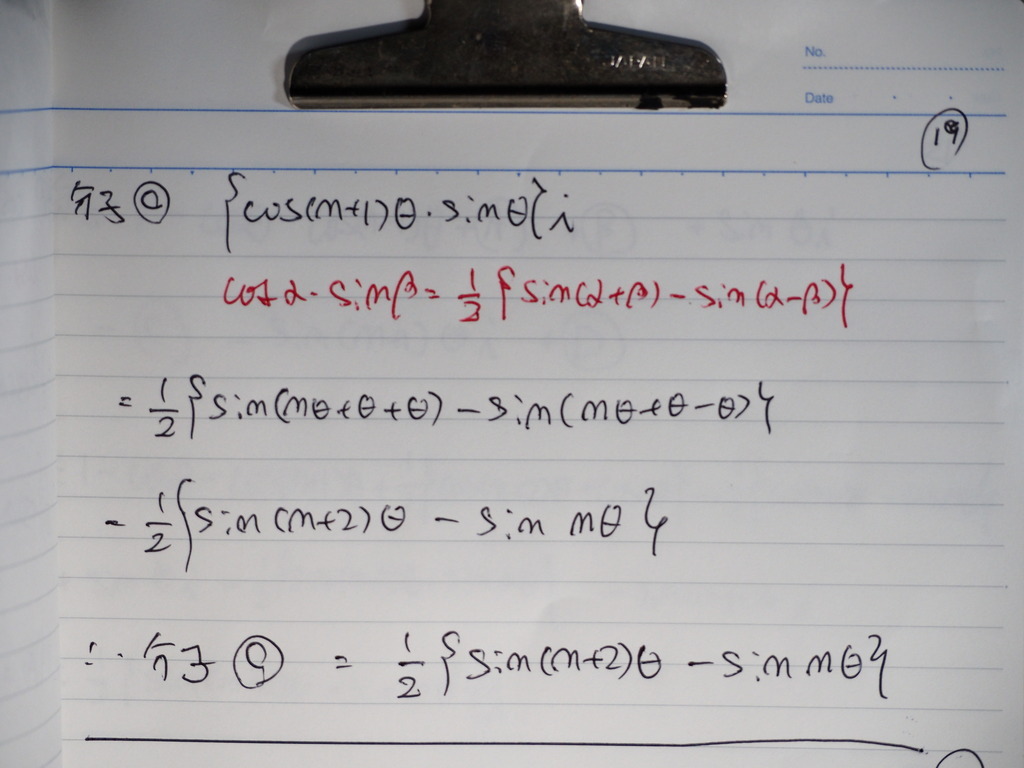 JAPAN
No.
Date
⑲
分子ⓐ {cos(n+1)θ・sinθ}i
cosα・sinβ=½{sin(α+β)-sin(α-β)}
=½{sin(nθ+θ+θ)-sin(nθ+θ-θ)}
=½{sin(n+2)θ - sin nθ}
∴ 分子ⓐ = ½{sin(n+2)θ - sin nθ}